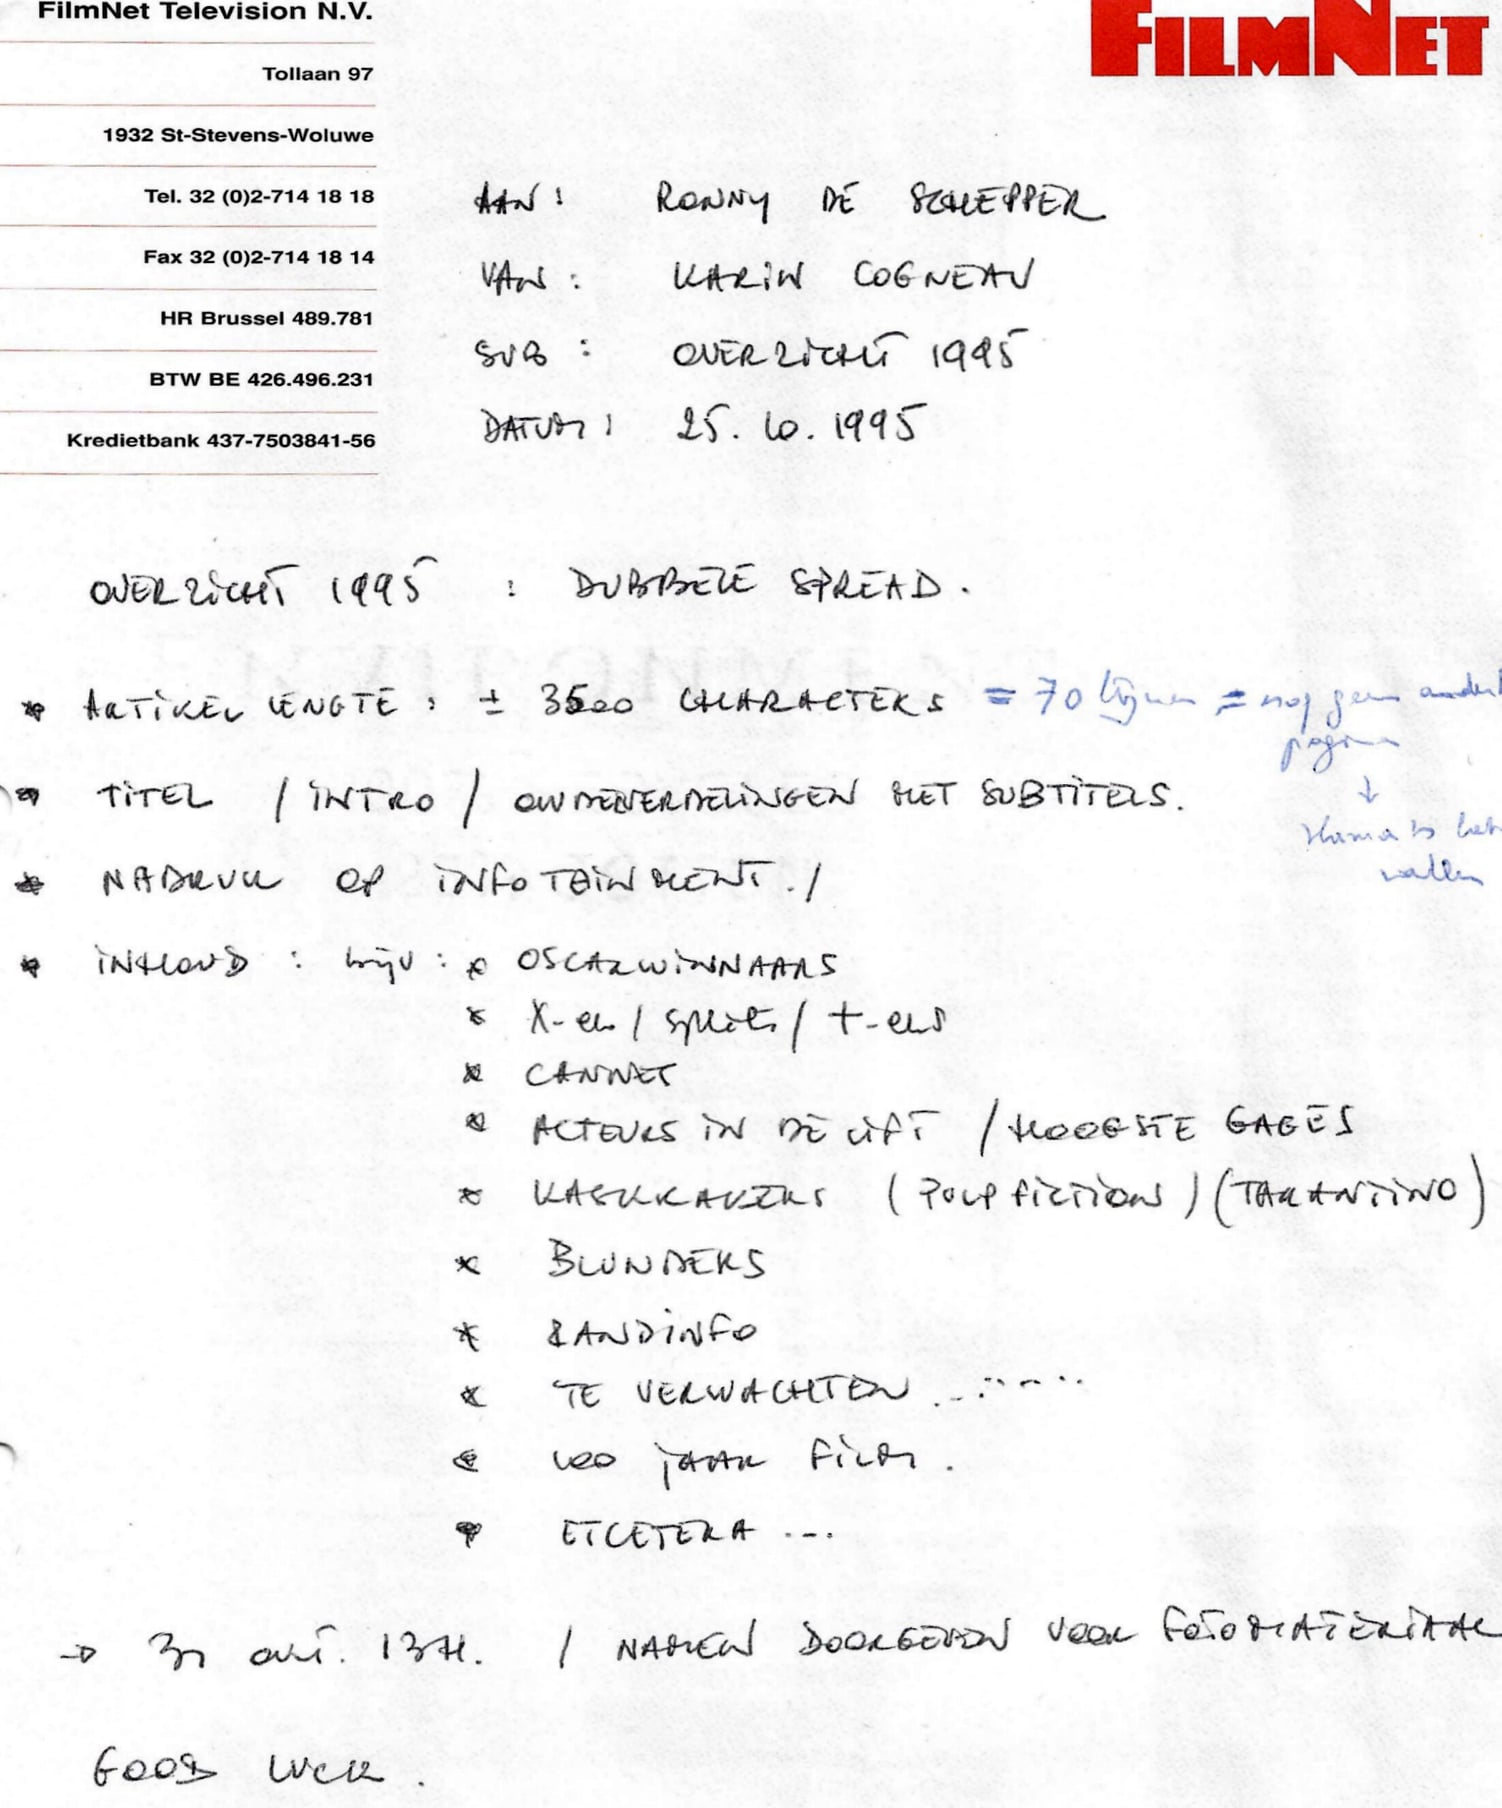 FilmNet Television N.V.
FILMNET
Tollaan 97
1932 St-Stevens-Woluwe
Tel. 32 (0)2-714 18 18
Fax 32 (0)2-714 18 14
HR Brussel 489.781
BTW BE 426.496.231
Kredietbank 437-7503841-56
AAN: RONNY DE SCHEPPER
VAN: KARIN COGNEAU
SUB: OVERZICHT 1995
DATUM: 25.10.1995
OVERZICHT 1995 : DUBBELE SPREAD.
* ARTIKEL LENGTE: ± 3500 CHARACTERS = 70 lijnen = nog geen
pagina
↓
* TITEL / INTRO / ONDERVERDELINGEN MET SUBTITELS.
* NADRUK OP INFOTAINMENT./
* INHOUD : bijv: * OSCARWINNAARS
* X-en / splits / +-ens
* CANNES
* ACTEURS IN DE LIFT / HOOGSTE GAGES
* KASKRAKERS (PULP FICTION) (TARANTINO)
* BLUNDERS
* RANDINFO
* TE VERWACHTEN ......
* 100 JAAR FILM.
* ETCETERA ...
→ 31 OKT. 13H. / NAMEN DOORGEVEN VOOR FOTOMATERIAAL
GOOD LUCK.